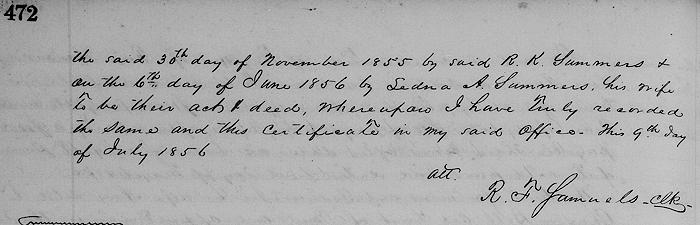 472
the said 30th day of November 1855 by said R. K. Summers &
on the 6th day of June 1856 by Sedna A. Summers, his wife
to be their act & deed, whereupon I have truly recorded
the same and this certificate in my said office. This 9th day
of July 1856
att.
R. F. Samuels clk